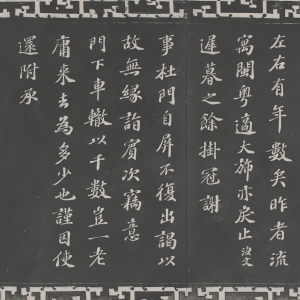 左右有年數矣昨者流
寓閩粵適大旆亦戾止
遲暮之餘掛冠謝
事杜門自屏不復出謁以
故無緣詣賓次竊意
門下車轍以千數豈一老
庸来去為多少也謹因使
還附承